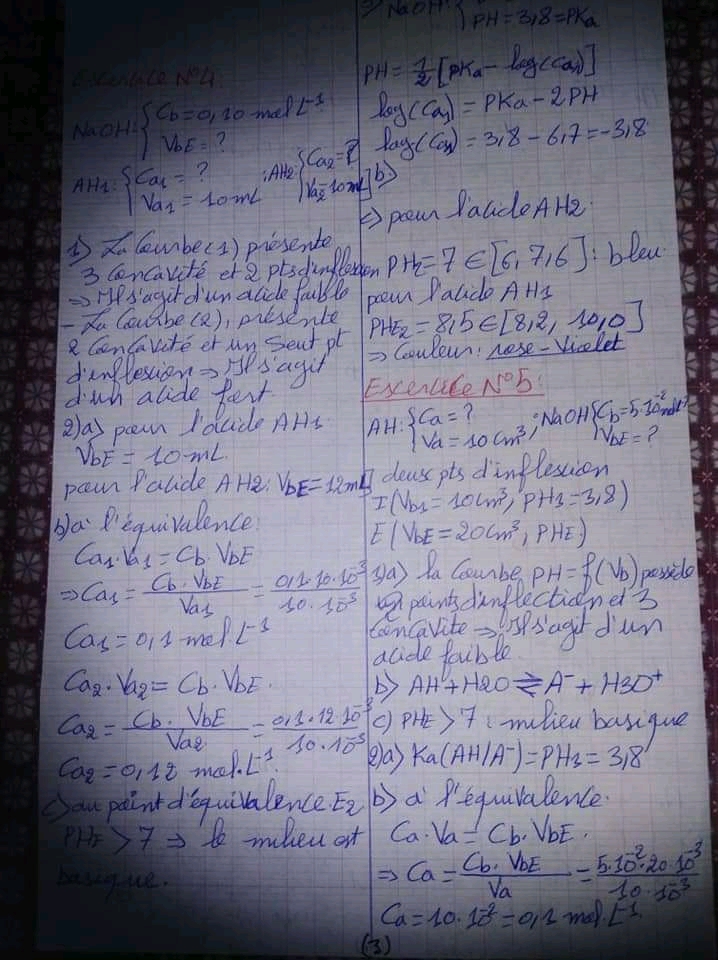 Exercice N°4
NaOH: { Cb = 0,10 mol.L⁻¹
VbE = ?
AH1: { Ca1 = ?
Va1 = 10 mL
; AH2: { Ca2 = ?
Va2 = 10 mL
1) La Courbe (1) présente
3 Concavité et 2 pts d'inflesion
⇒ Il s'agit d'un acide faible
- La Courbe (2), présente
2 Concavité et un Seul pt
d'inflesion ⇒ Il s'agit
d'un acide fort
2) a) pour l'acide AH1
VbE = 10 mL.
pour l'acide AH2: VbE = 12 mL
b) à l'équivalence:
Ca1.Va1 = Cb.VbE
⇒ Ca1 = Cb.VbE / Va1 = 0,1.10.10⁻³ / 10.10⁻³
Ca1 = 0,1 mol.L⁻¹
Ca2.Va2 = Cb.VbE.
Ca2 = Cb.VbE / Va2 = 0,1.12.10⁻³ / 10.10⁻³
Ca2 = 0,12 mol.L⁻¹
c) au point d'équivalence E2
PHE > 7 ⇒ le milieu est
basique.
NaOH {
PH = 3,8 = PKa
PH = 1/2 [PKa - log(Ca1)]
log(Ca1) = PKa - 2PH
log(Ca1) = 3,8 - 6,7 = -3,8
b)
pour l'acide AH2
= 7 ∈ [6, 7,6]: bleu
pour l'acide AH1
PHE2 = 8,5 ∈ [8,2, 10,0]
⇒ Couleur: rose-violet
Exercice N°5:
AH: { Ca = ?
Va = 10 cm³
; NaOH { Cb = 5.10⁻² mol.L⁻¹
VbE = ?
deux pts d'inflesion
I (Vb1 = 10 cm³, PH1 = 3,8)
E (VbE = 20 cm³, PHE)
1) a) la Courbe PH = f(Vb) possède
2 points d'inflection et 3
Concavite ⇒ Il s'agit d'un
acide faible.
b) AH + H2O ⇌ A⁻ + H3O⁺
c) PHE > 7 : milieu basique
2) a) Ka (AH/A⁻) = PH1 = 3,8
b) à l'équivalence.
Ca.Va = Cb.VbE.
⇒ Ca = Cb.VbE / Va = 5.10⁻².20.10⁻³ / 10.10⁻³
Ca = 10.10⁻² = 0,1 mol.L⁻¹
(3)